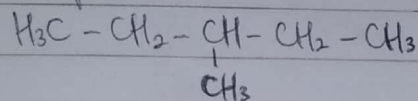 H₃C - CH₂ - CH - CH₂ - CH₃
CH₃